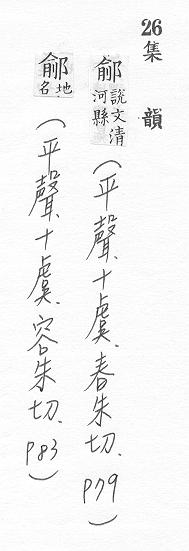 26集韻
鄃說文清河縣（平聲、十虞、春朱切、P79）
鄃地名（平聲、十虞、容朱切、P83）